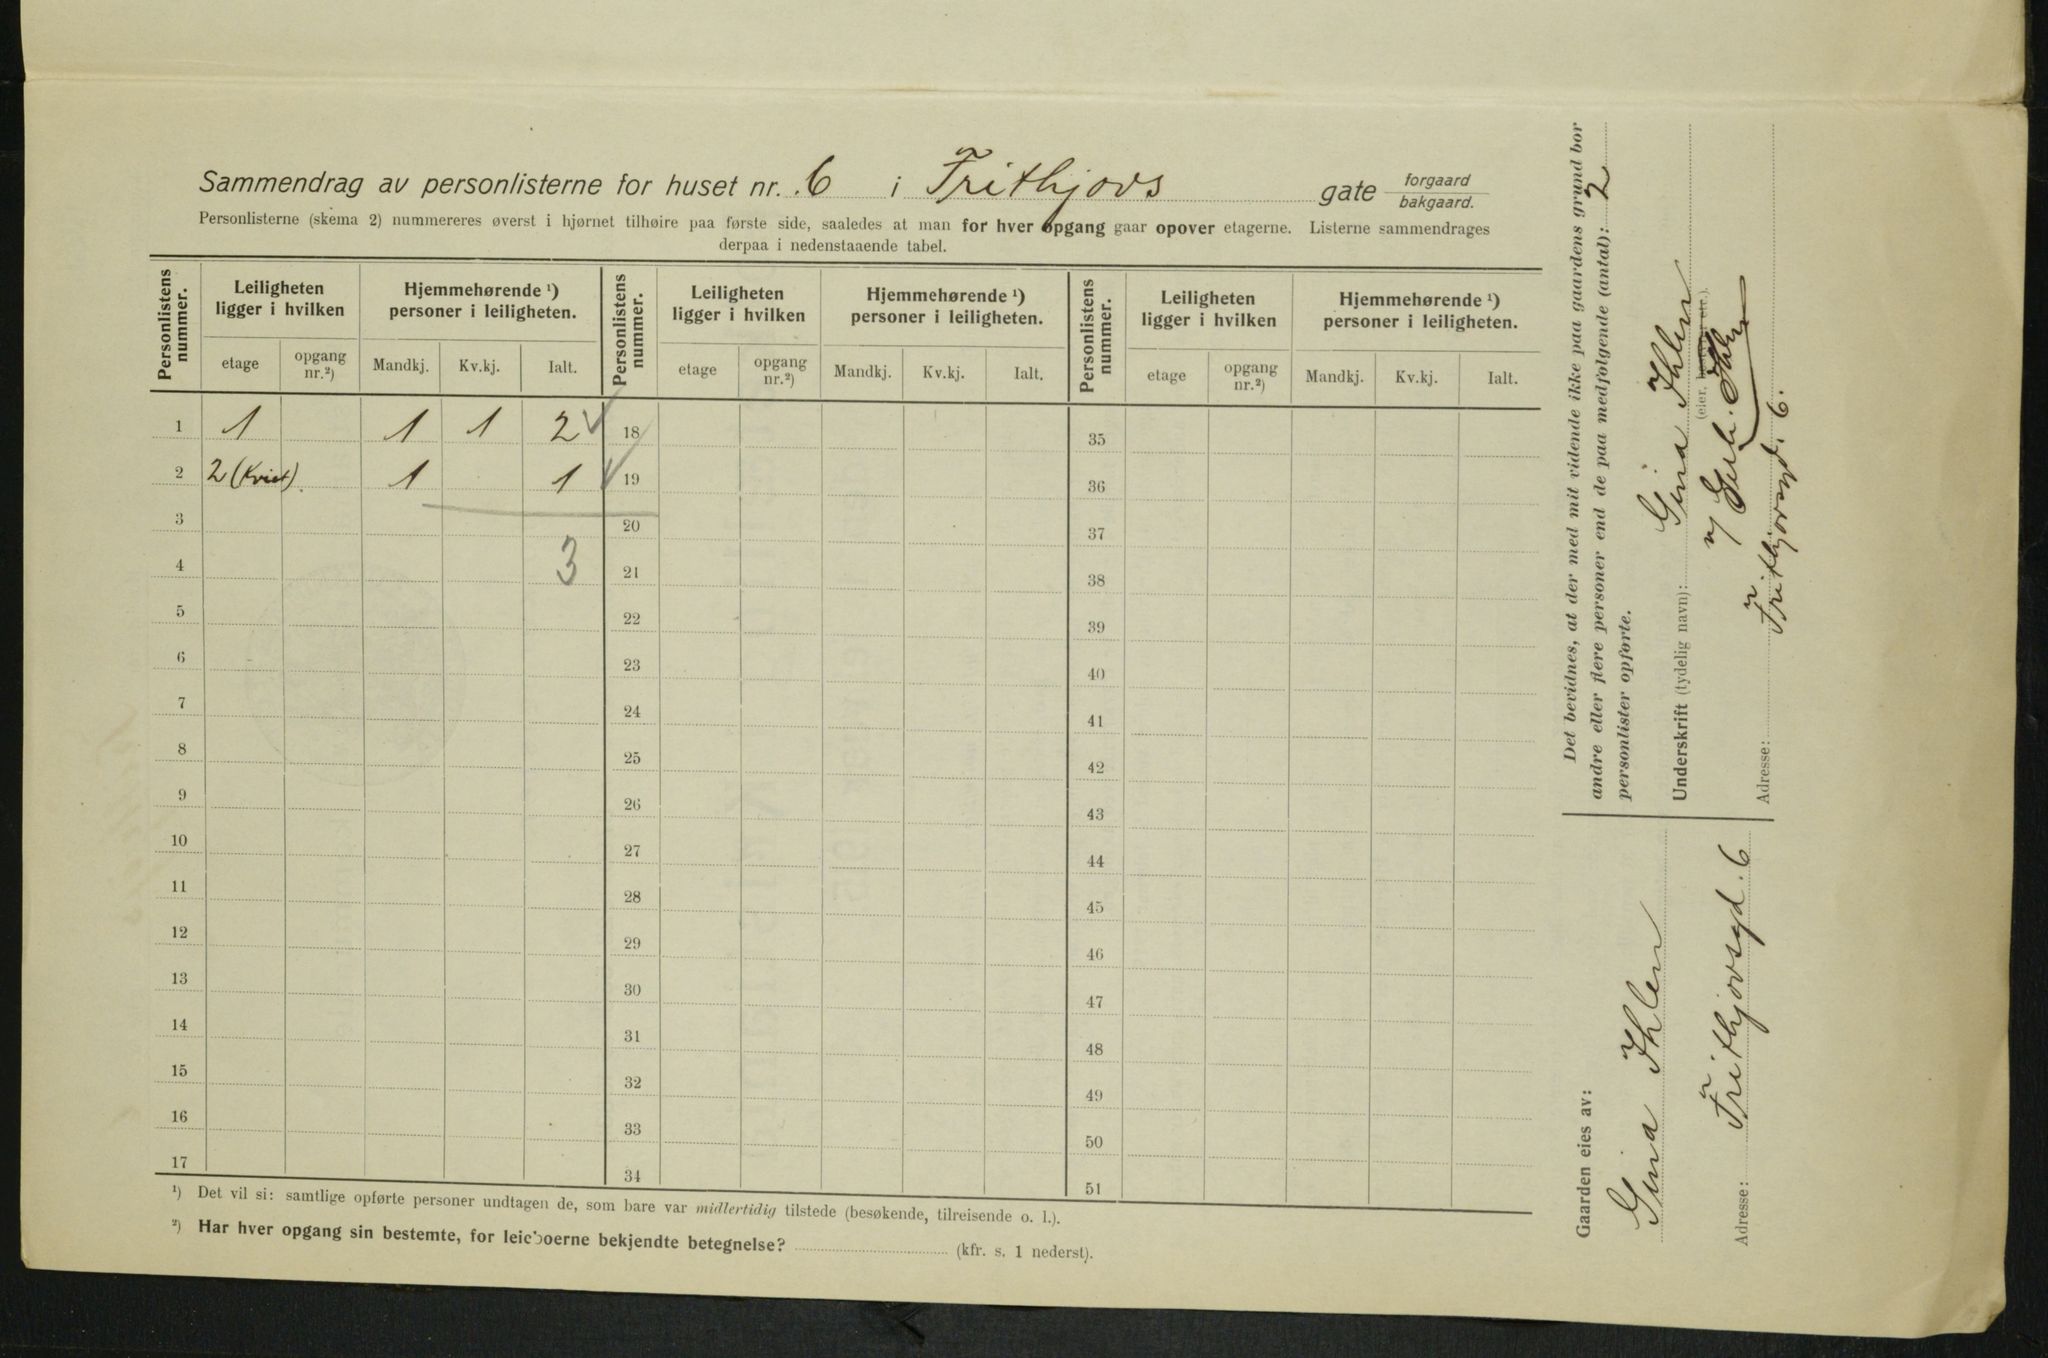 Sammendrag av personlisterne for huset nr. 6 i Frithjovs gate forgaard bakgaard.
Personlisterne (skema 2) nummereres øverst i hjørnet tilhøire paa første side, saaledes at man for hver opgang gaar opover etagerne. Listerne sammendrages
derpaa i nedenstaaende tabel.
Personlistens nummer. Leiligheten ligger i hvilken Hjemmehørende ¹) personer i leiligheten. Personlistens nummer. Leiligheten ligger i hvilken Hjemmehørende ¹) personer i leiligheten. Personlistens nummer. Leiligheten ligger i hvilken Hjemmehørende ¹) personer i leiligheten.
etage opgang nr.²) Mandkj. Kv.kj. Ialt. etage opgang nr.²) Mandkj. Kv.kj. Ialt. etage opgang nr.²) Mandkj. Kv.kj. Ialt.
1 1 1 1 2 18 35
2 2 (Kvist) 1 1 19 36
3 20 37
4 3 21 38
5 22 39
6 23 40
7 24 41
8 25 42
9 26 43
10 27 44
11 28 45
12 29 46
13 30 47
14 31 48
15 32 49
16 33 50
17 34 51
¹) Det vil si: samtlige opførte personer undtagen de, som bare var midlertidig tilstede (besøkende, tilreisende o. l.).
²) Har hver opgang sin bestemte, for leieboerne bekjendte betegnelse? (kfr. s. 1 nederst).
Det bevidnes, at der med mit vidende ikke paa gaardens grund bor
andre eller flere personer end de paa medfølgende (antal): 2
personlister opførte.
Underskrift (tydelig navn): Gina Ihlen
(eier, etc.).
Ihlen
Adresse: Frithjovsgd. 6.
Gaarden eies av:
Gina Ihlen
Adresse: Frithjovsgd. 6